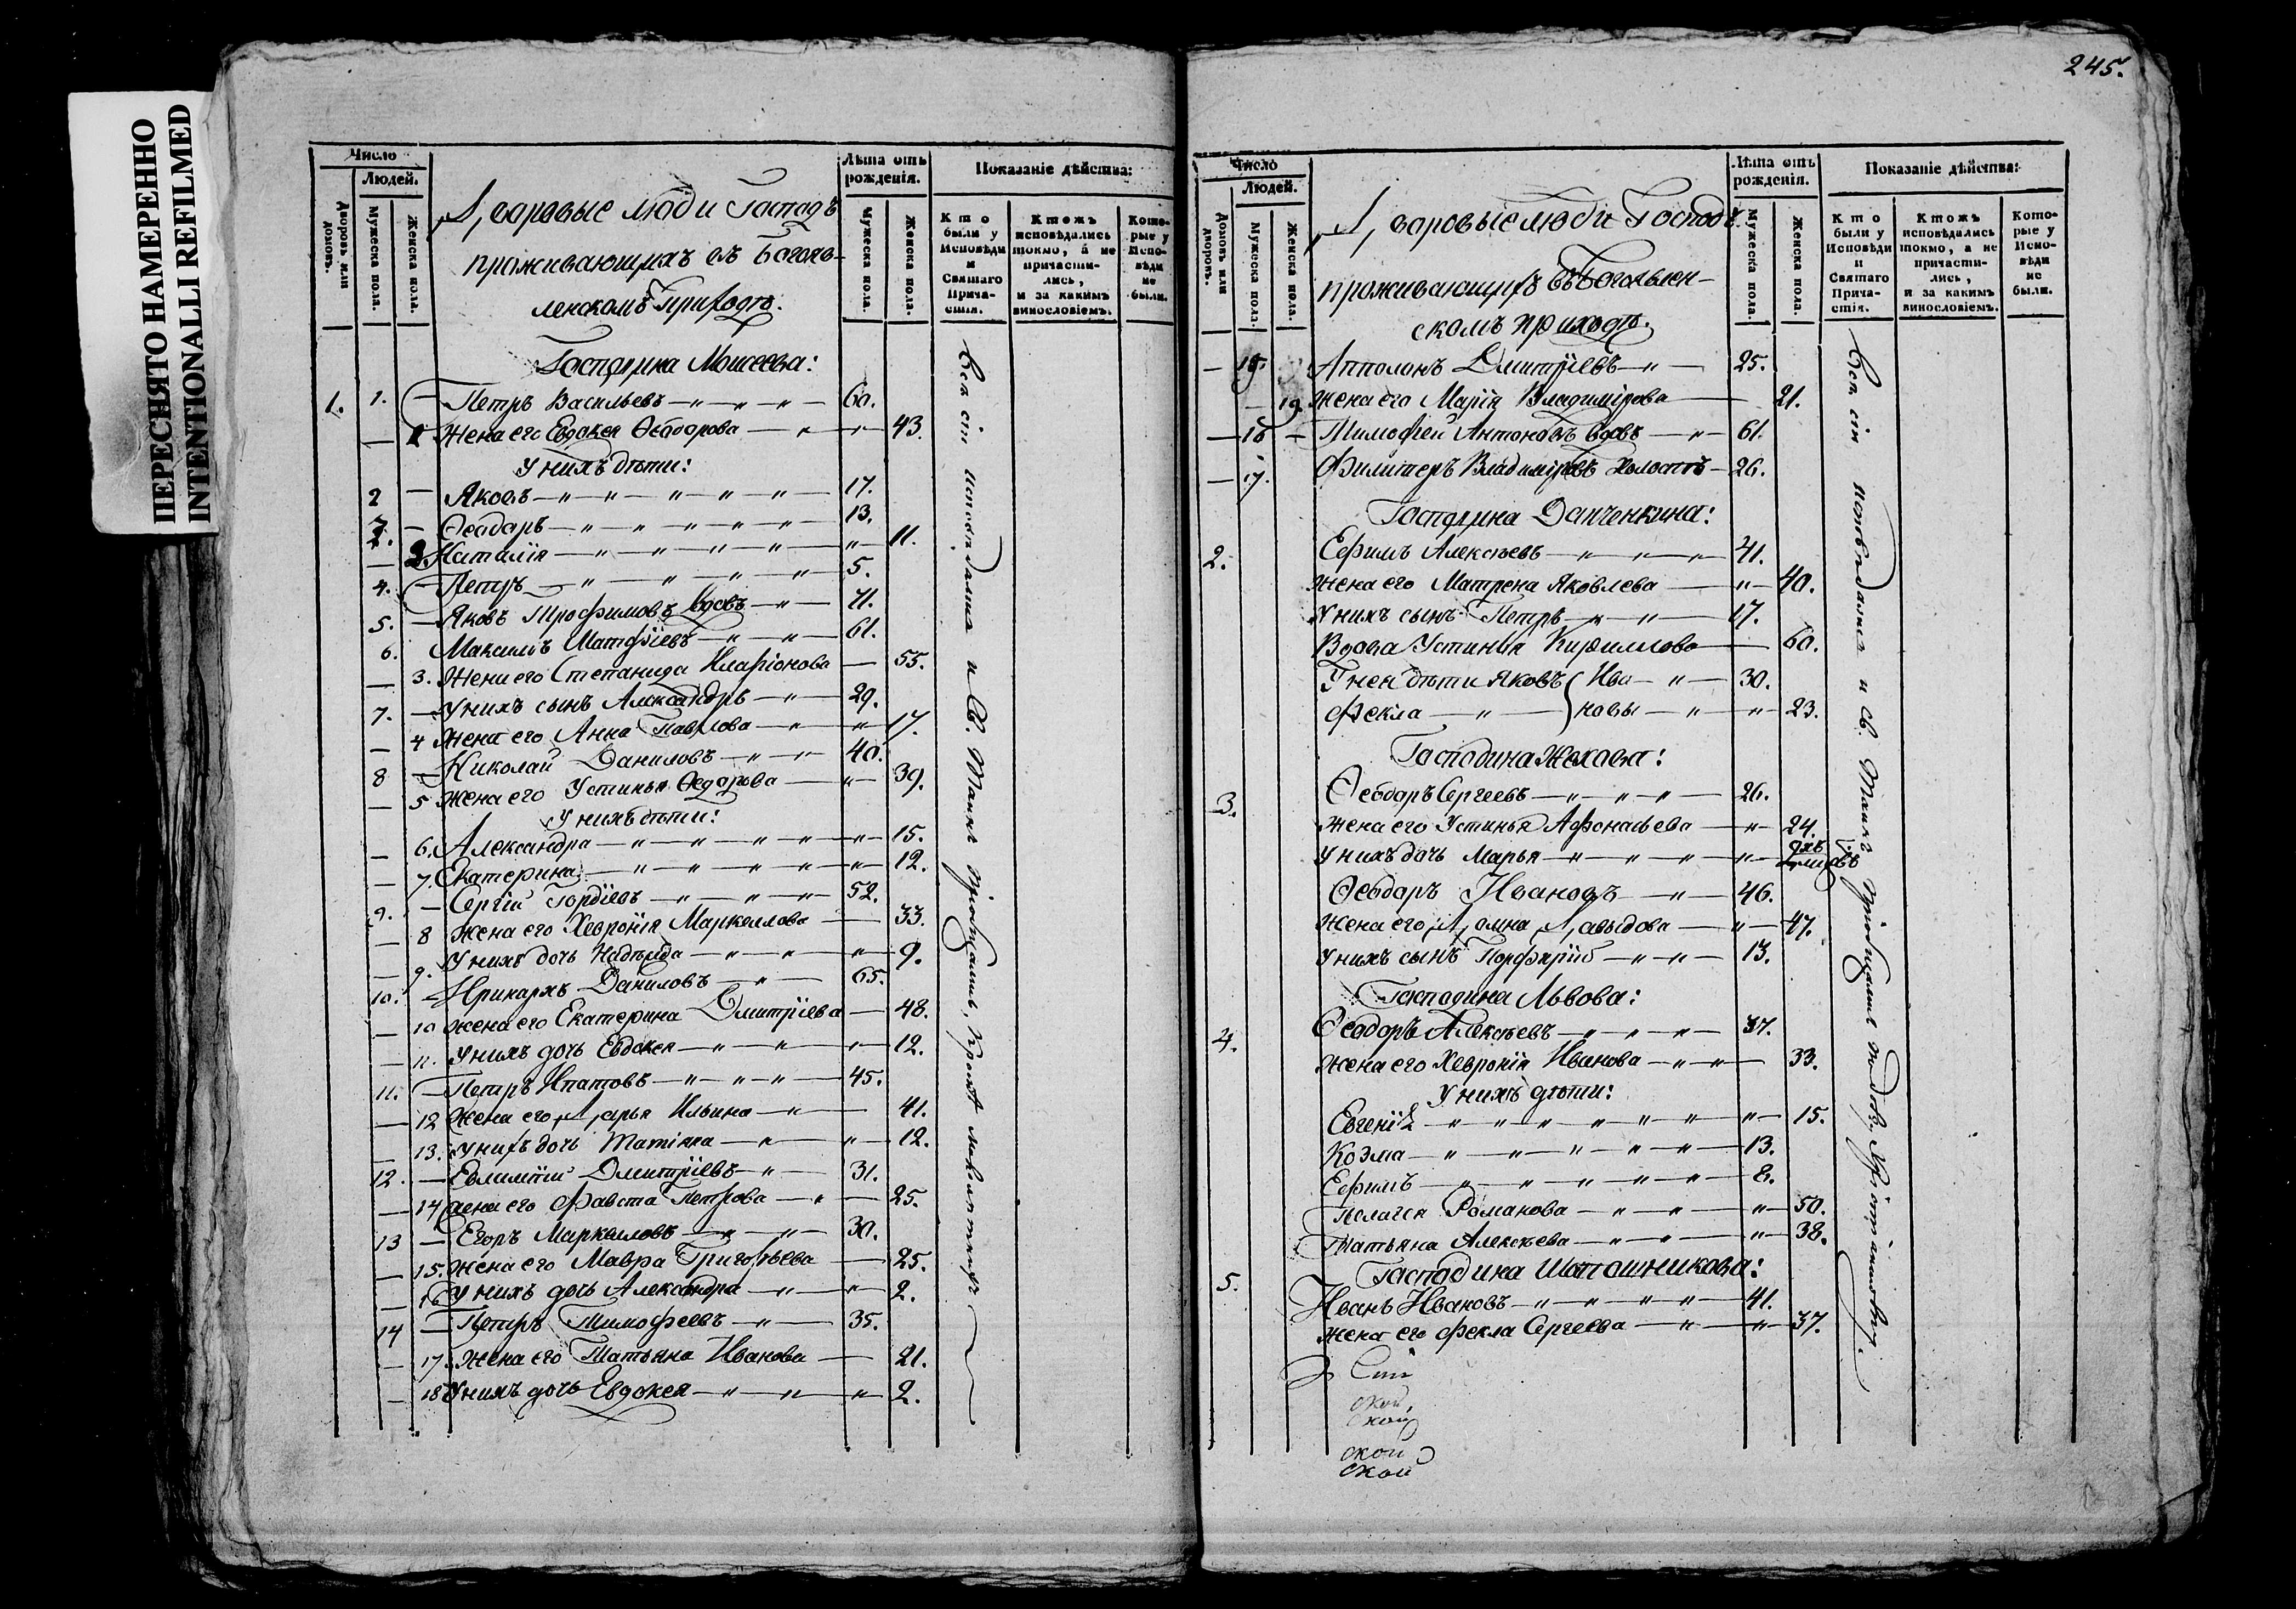 ПЕРЕСНЯТО НАМЕРЕННО
INTENTIONALLI REFILMED
245.
Число
Людей.
Дворовъ или домовъ.
Мужеска пола.
Женска пола.
Дворовые люди Господъ
проживающихъ въ Богояв-
ленскомъ Приходѣ.
Лѣта отъ рожденія.
Мужеска пола.
Женска пола.
Показаніе дѣйства:
Кто были у Исповѣди и Святаго Прича-стія.
Ктожъ исповѣдались токмо, а не причасти-лись, и за какимъ винословіемъ.
Кото-рые у Испо-вѣди не были.
Господина Моисеева:
1. 1. — Петръ Васильевъ — 60.
— 1 Жена его Евдокея Ѳеодорова — 43.
У нихъ дѣти:
2 — Яковъ — 17.
3. — Ѳеодоръ — 13.
— 2. Наталія — 11.
4. — Петръ — 5.
5. — Яковъ Трофимовъ Вдовъ — 71.
6. Максимъ Матфіевъ — 61.
— 3. Жена его Степанида Иларіонова — 55.
7. — У нихъ сынъ Александръ — 29.
— 4 Жена его Анна Павлова — 17.
8 — Николай Даниловъ — 40.
— 5 Жена его Устинья Ѳедорова — 39.
У нихъ дѣти:
— 6. Александра — 15.
— 7. Екатерина — 12.
9. — Сергій Гордіевъ — 52.
— 8 Жена его Хевронія Маркеллова — 33.
— 9. У нихъ дочь Надежда — 9.
10. — Иринархъ Даниловъ — 65.
— 10 Жена его Екатерина Дмитріева — 48.
— 11. У нихъ дочь Евдокея — 12.
11. — Петръ Ипатовъ — 45.
— 12 Жена его Дарья Ильина — 41.
— 13. У нихъ дочь — 12.
12. — Дмитріевъ — 31.
— 14 Жена его Фавста Петрова — 25.
13 — Егоръ Маркеловъ — 30.
— 15. Жена его Мавра Григорьева — 25.
— 16 У нихъ дочь Александра — 2.
14 — Петръ Тимофеевъ — 35.
— 17. Жена его Татьяна Иванова — 21.
— 18 У нихъ дочь Евдокея — 2.
Всѣ сіи исповѣдались и Св. Таинъ пріобщались, кромѣ
Число
Людей.
Домовъ или дворовъ.
Мужеска пола.
Женска пола.
Дворовые люди Господъ
проживающихъ въ Богоявлен-
скомъ приходѣ.
Лѣта отъ рожденія.
Мужеска пола.
Женска пола.
Показаніе дѣйства:
Кто были у Исповѣди и Святаго Прича-стія.
Ктожъ исповѣдались токмо, а не причасти-лись, и за какимъ винословіемъ.
Кото-рые у Испо-вѣди не были.
— 15. Апполонъ Дмитріевъ — 25.
— 19 Жена его Марія Владимірова — 21.
— 16 — Тимофей Антоновъ Вдовъ — 61.
— 17. Филитеръ Владиміровъ Холостъ — 26.
Господина Данченкина:
2. Ефимъ Алексѣевъ — 41.
Жена его Матрена Яковлева — 40.
У нихъ сынъ Петръ — 17.
Вдова Устинья Кириллова — 60.
У ней дѣти Яковъ ( Ива — 30.
Фекла — ) новы — 23.
Господина Жехова:
3. Ѳеодоръ Сергеевъ — 26.
Жена его Устинья Афонасьева — 24.
У нихъ дочь Марья —
Ѳеодоръ Ивановъ — 46.
Жена его Домна Давыдова — 47.
У нихъ сынъ Порфирій — 13.
Господина Львова:
4. Ѳеодоръ Алексѣевъ — 37.
Жена его Хевронія Иванова — 33.
У нихъ дѣти:
Евгенія — 15.
Козма — 13.
Ефимъ — 8.
Пелагея Романова — 50.
Татьяна Алексѣева — 38.
Господина Шапошникова:
5. Иванъ Ивановъ — 41.
Жена его Фекла Сергеева — 37.
ской
ской
ской
ской
Всѣ сіи исповѣдались и Св. Таинъ пріобщались